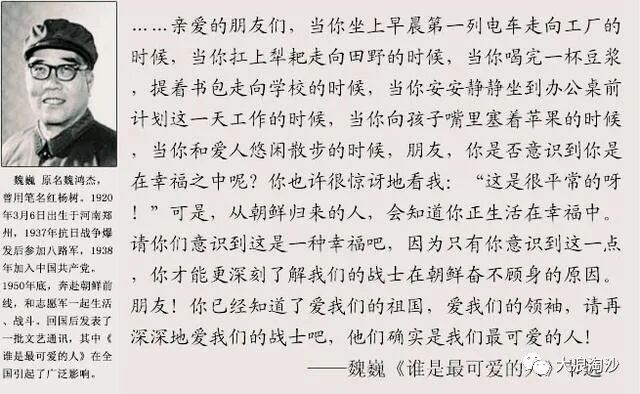 魏巍 原名魏鸿杰，
曾用笔名红杨树。1920
年3月6日出生于河南郑
州，1937年抗日战争爆
发后参加八路军，1938
年加入中国共产党。
1950年底，奔赴朝鲜前
线，和志愿军一起生活
、战斗。回国后发表了
一批文艺通讯，其中《
谁是最可爱的人》在全
国引起了广泛影响。
……亲爱的朋友们，当你坐上早晨第一列电车走向工厂的
时候，当你扛上犁耙走向田野的时候，当你喝完一杯豆浆
，提着书包走向学校的时候，当你安安静静坐到办公桌前
计划这一天工作的时候，当你向孩子嘴里塞着苹果的时候
，当你和爱人悠闲散步的时候，朋友，你是否意识到你是
在幸福之中呢？你也许很惊讶地看我：“这是很平常的呀
！”可是，从朝鲜归来的人，会知道你正生活在幸福中。
请你们意识到这是一种幸福吧，因为只有你意识到这一点
，你才能更深刻了解我们的战士在朝鲜奋不顾身的原因。
朋友！你已经知道了爱我们的祖国，爱我们的领袖，请再
深深地爱我们的战士吧，他们确实是我们最可爱的人！
——魏巍《谁是最可爱的人》
大浪淘沙